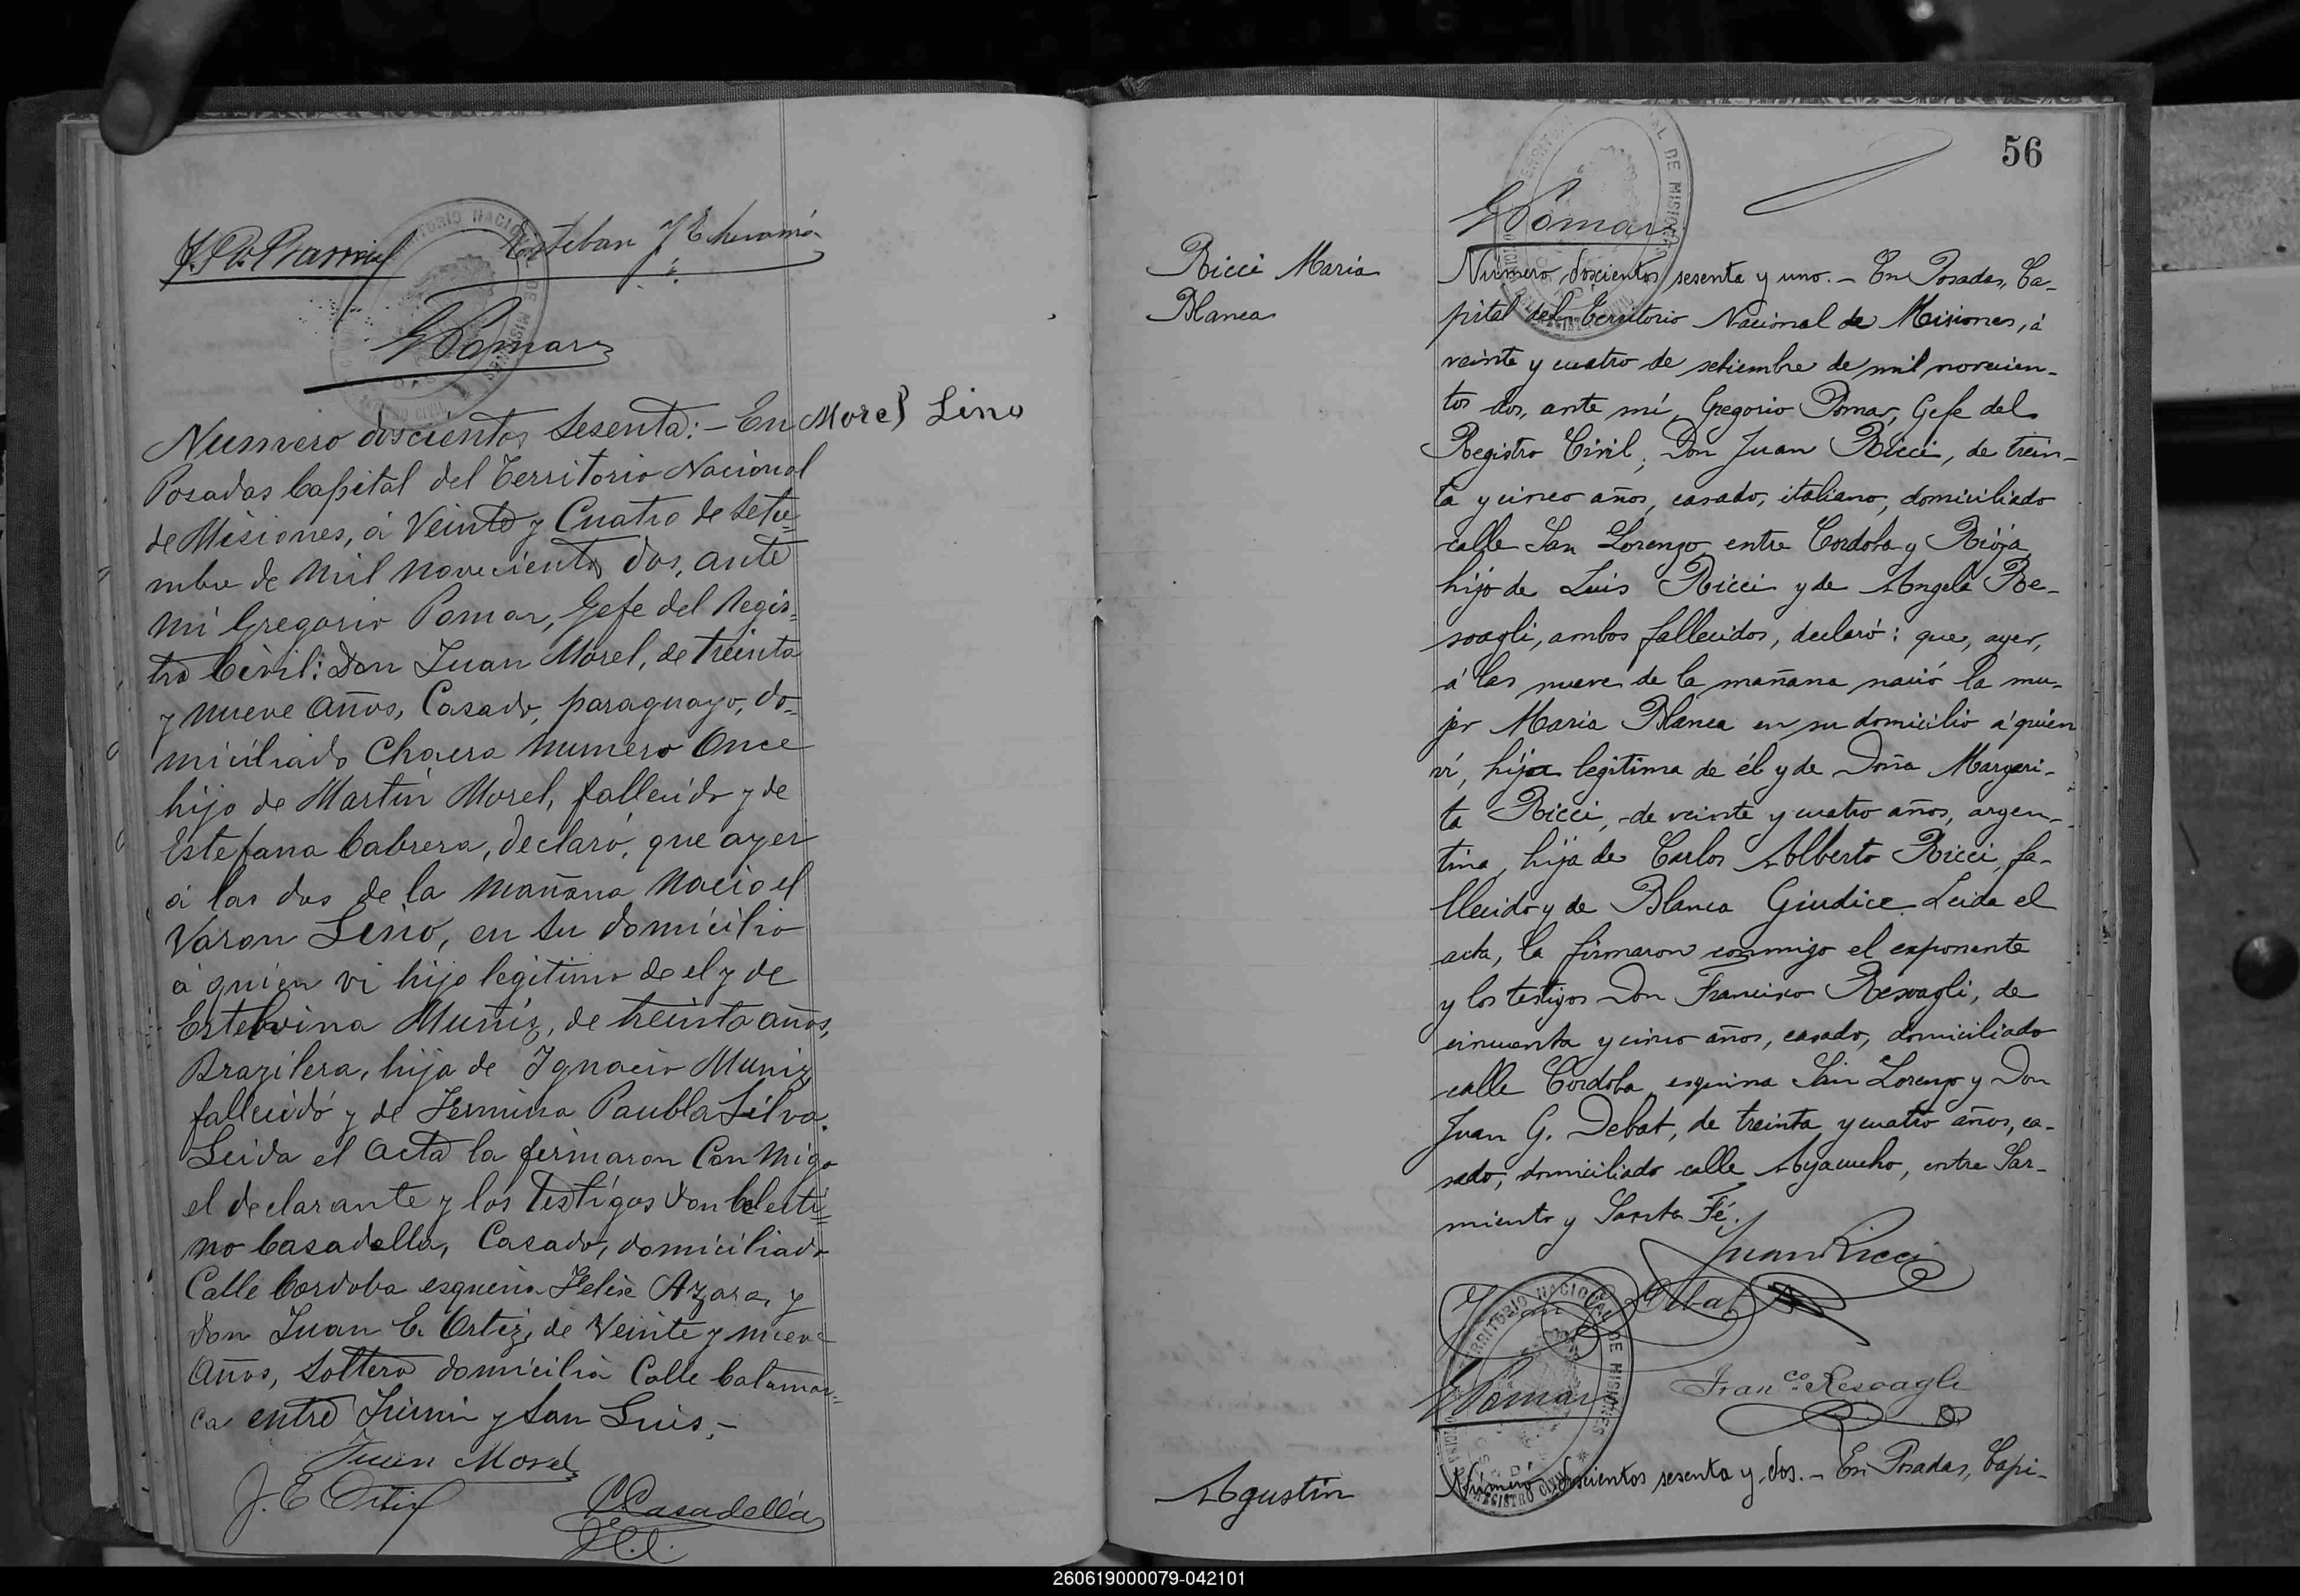 Esteban
GPomar
Morel Lino
Numero doscientos Sesenta:- En
Posadas Capital del Territorio Nacional
de Misiones, á Veinte y Cuatro de Setie=
mbre de Mil Novecientos dos, ante
mi Gregorio Pomar, Gefe del Regis=
tro Civil: Don Juan Morel, de treinta
y nueve años, Casado, paraguayo, do=
miciliado Chacra numero Once
hijo de Martin Morel, fallecido y de
Estefana Cabrera, declaró, que ayer
á las dos de la mañana nacio el
Varon Lino, en su domicilio
á quien vi hijo legitimo de el y de
Estelvina Muñiz, de treinta años,
Brazilera, hija de Ignacio Muniz
fallecidó y de Fermina Paubla Silva.
Leida el Acta la firmaron Con migo
el declarante y los Testigos Don Celesti=
no Casadella, Casado, domiciliado
Calle Cordoba esquina Felix Azara, y
Don Juan E. Ortiz, de Veinte y nueve
Años, Soltero domicilio Calle Catamar=
ca entre Junin y San Luis.-
Juan Morel
J. E Ortiz
C Casadella
56
GPomar
Ricci Maria
Blanca
Número doscientos sesenta y uno.- En Posadas, Ca-
pital del Territorio Nacional de Misiones, á
veinte y cuatro de setiembre de mil novecien-
tos dos, ante mí, Gregorio Pomar, Gefe del
Registro Civil, Don Juan Ricci, de trein-
ta y cinco años, casado, italiano, domiciliado
calle San Lorenzo entre Cordoba y Rioja,
hijo de Luis Ricci y de Angela Re-
soagli, ambos fallecidos, declaró: que, ayer,
á las nueve de la mañana nació la mu-
jer Maria Blanca en su domicilio á quien
ví, hija legítima de él y de Doña Margari-
ta Ricci, de veinte y cuatro años, argen-
tina, hija de Carlos Alberto Ricci, fa-
llecido y de Blanca Giudice. Leida el
acta, la firmaron conmigo el exponente
y los testigos Don Francisco Resoagli, de
cincuenta y cinco años, casado, domiciliado
calle Cordoba esquina San Lorenzo y Don
Juan G. Debat, de treinta y cuatro años, ca-
sado, domiciliado calle Ayacucho, entre Sar-
miento y Santa Fé.
Juan Ricci
Juan G. Debat
GPomar
Fran.co Resoagli
TERRITORIO NACIONAL DE MISIONES
REGISTRO CIVIL
Agustín
Número doscientos sesenta y dos.- En Posadas, Capi-
260619000079-042101